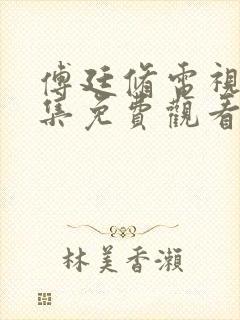 傅廷脩電視
集免費觀看
林美香瀨